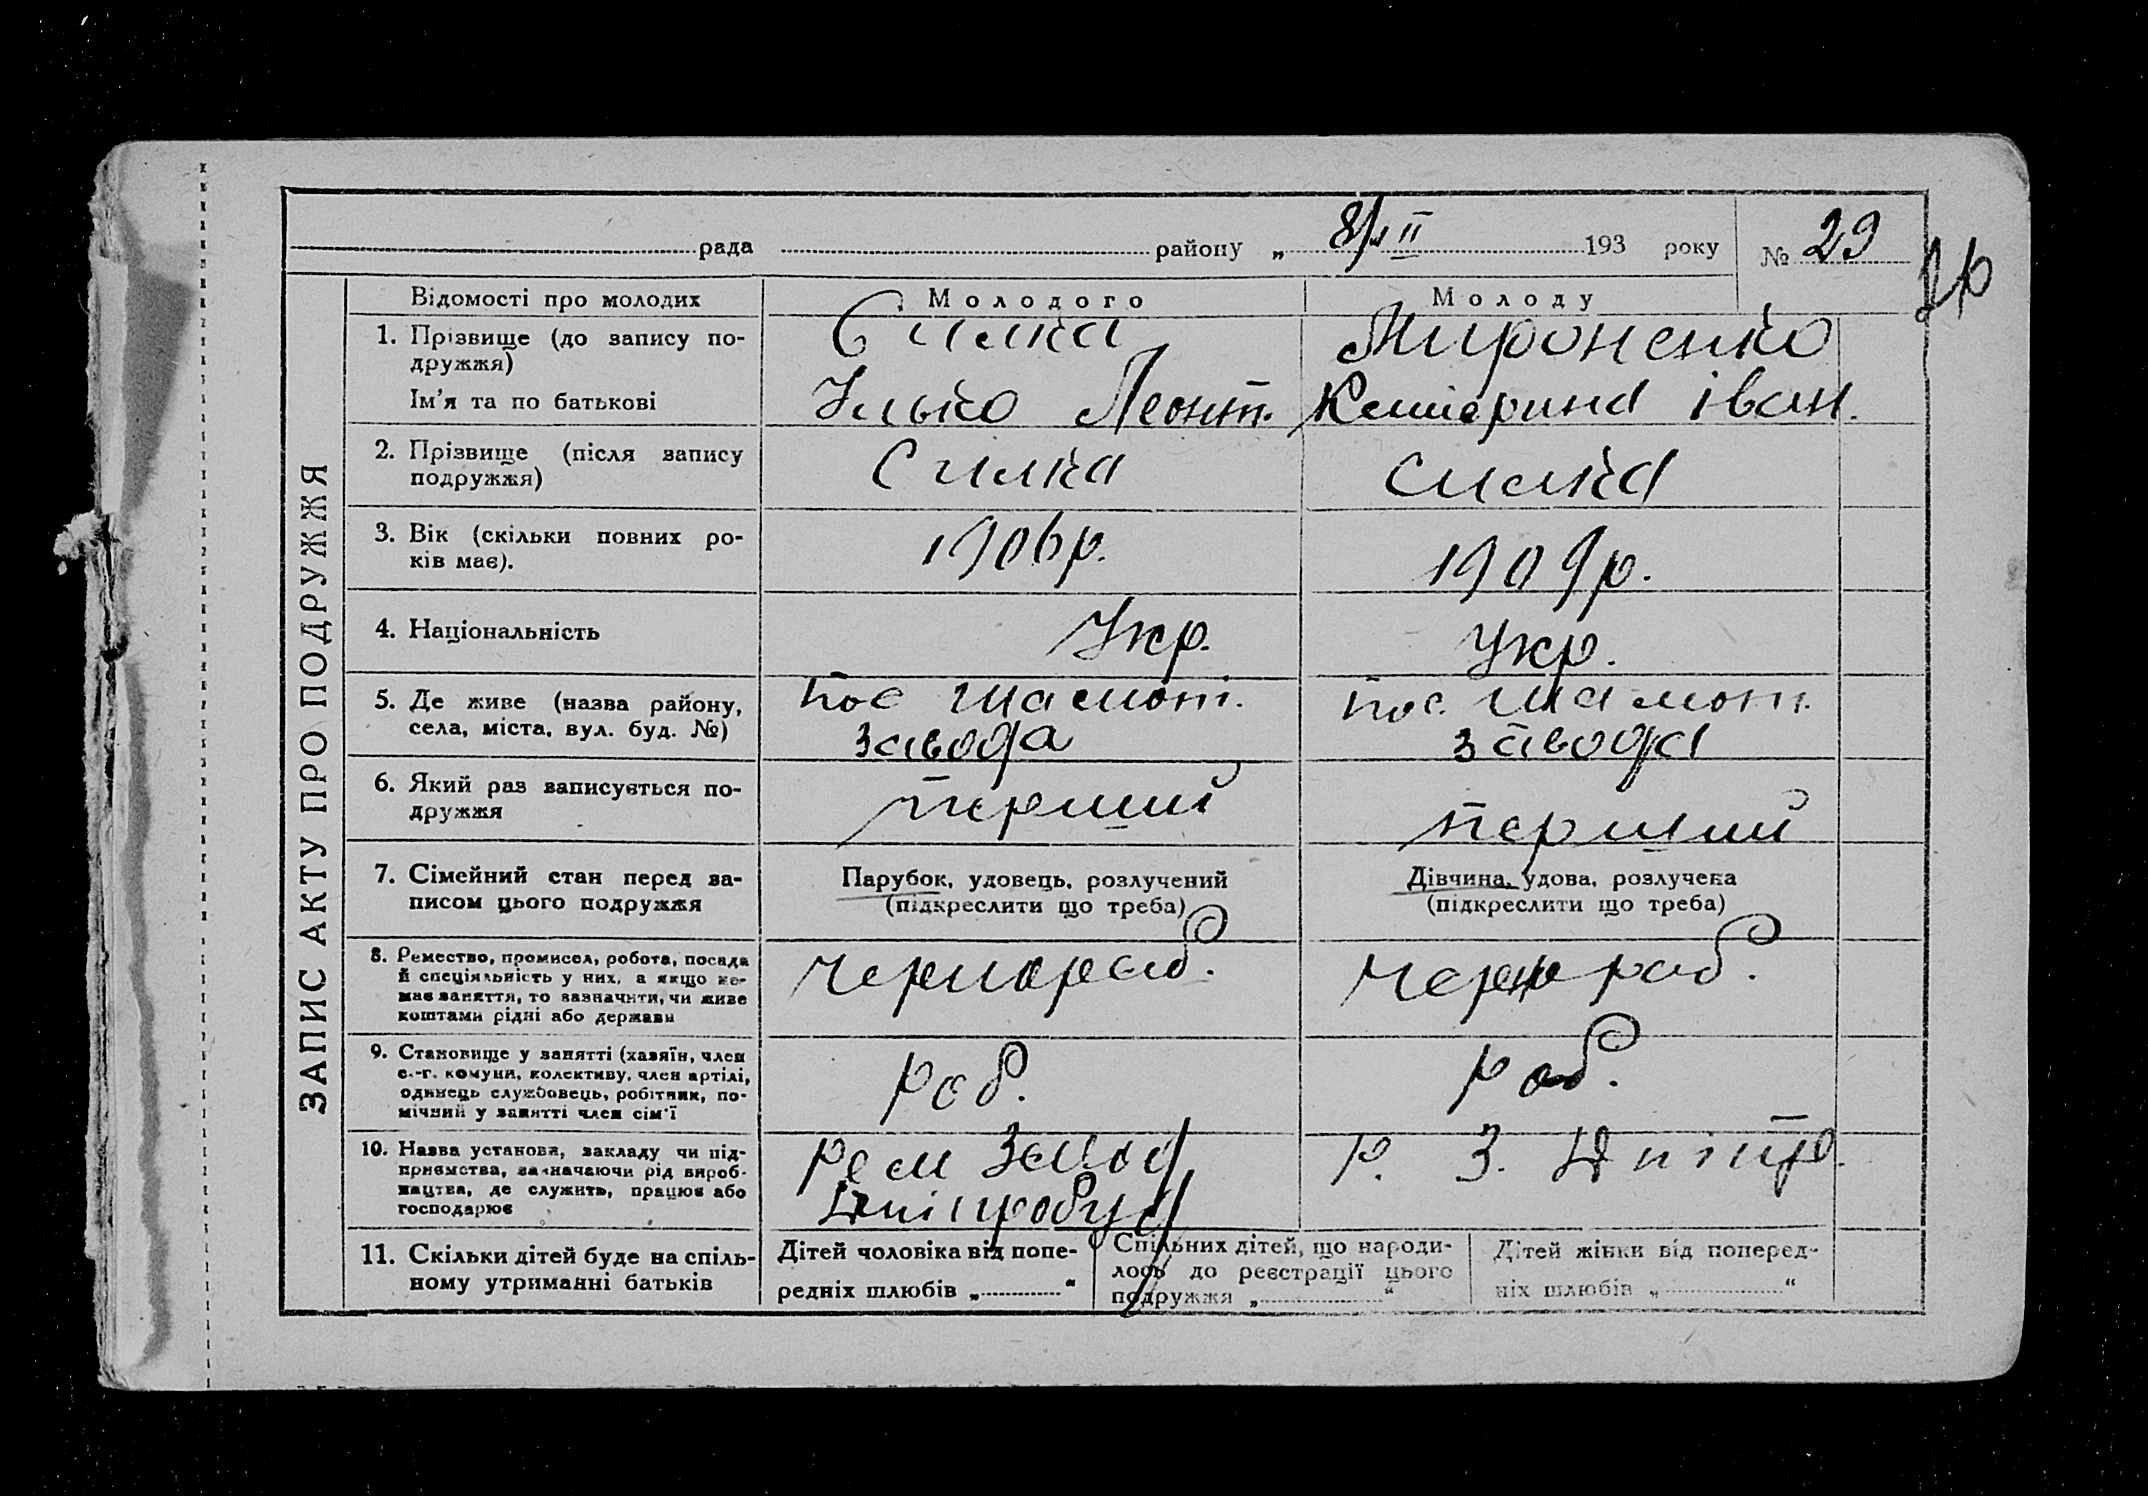 рада району „ 8/II 193 року № 29
26
ЗАПИС АКТУ ПРО ПОДРУЖЖЯ
Відомості про молодих Молодого Молоду
1. Прізвище (до запису по-
дружжя)
Силка Мироненко
Ім'я та по батькові Ілько Леонт. Катерина Іван.
2. Прізвище (після запису
подружжя)
Силка Силка
3. Вік (скільки повних ро-
ків має).
1906р. 1909р.
4. Національність Укр. Укр.
5. Де живе (назва району,
села, міста, вул. буд. №)
пос шамот. пос. шамот.
завода завода
6. Який раз записується по-
дружжя
перший перший
7. Сімейний стан перед за-
писом цього подружжя
Парубок, удовець, розлучений
(підкреслити що треба)
Дівчина, удова, розлучена
(підкреслити що треба)
8. Ремество, промисел, робота, посада
й спеціяльність у них, а якщо не-
має заняття, то зазначити, чи живе
коштами рідні або держави
чернораб. чернораб.
9. Становище у занятті (хазяїн, член
с.-г. комуни, колективу, член артілі,
одинець службовець, робітник, по-
мічний у занятті член сім'ї
Роб. Роб.
10. Назва установи, закладу чи під-
приємства, зазначаючи рід вироб-
ництва, де служить, працює або
господарює
Рем завод Р. З. Дніпр.
Дніпробуд
11. Скільки дітей буде на спіль-
ному утриманні батьків
Дітей чоловіка від попе-
редніх шлюбів „ “
Спільних дітей, що народи-
лось до реєстрації цього
подружжя „ “
Дітей жінки від поперед-
ніх шлюбів „ “